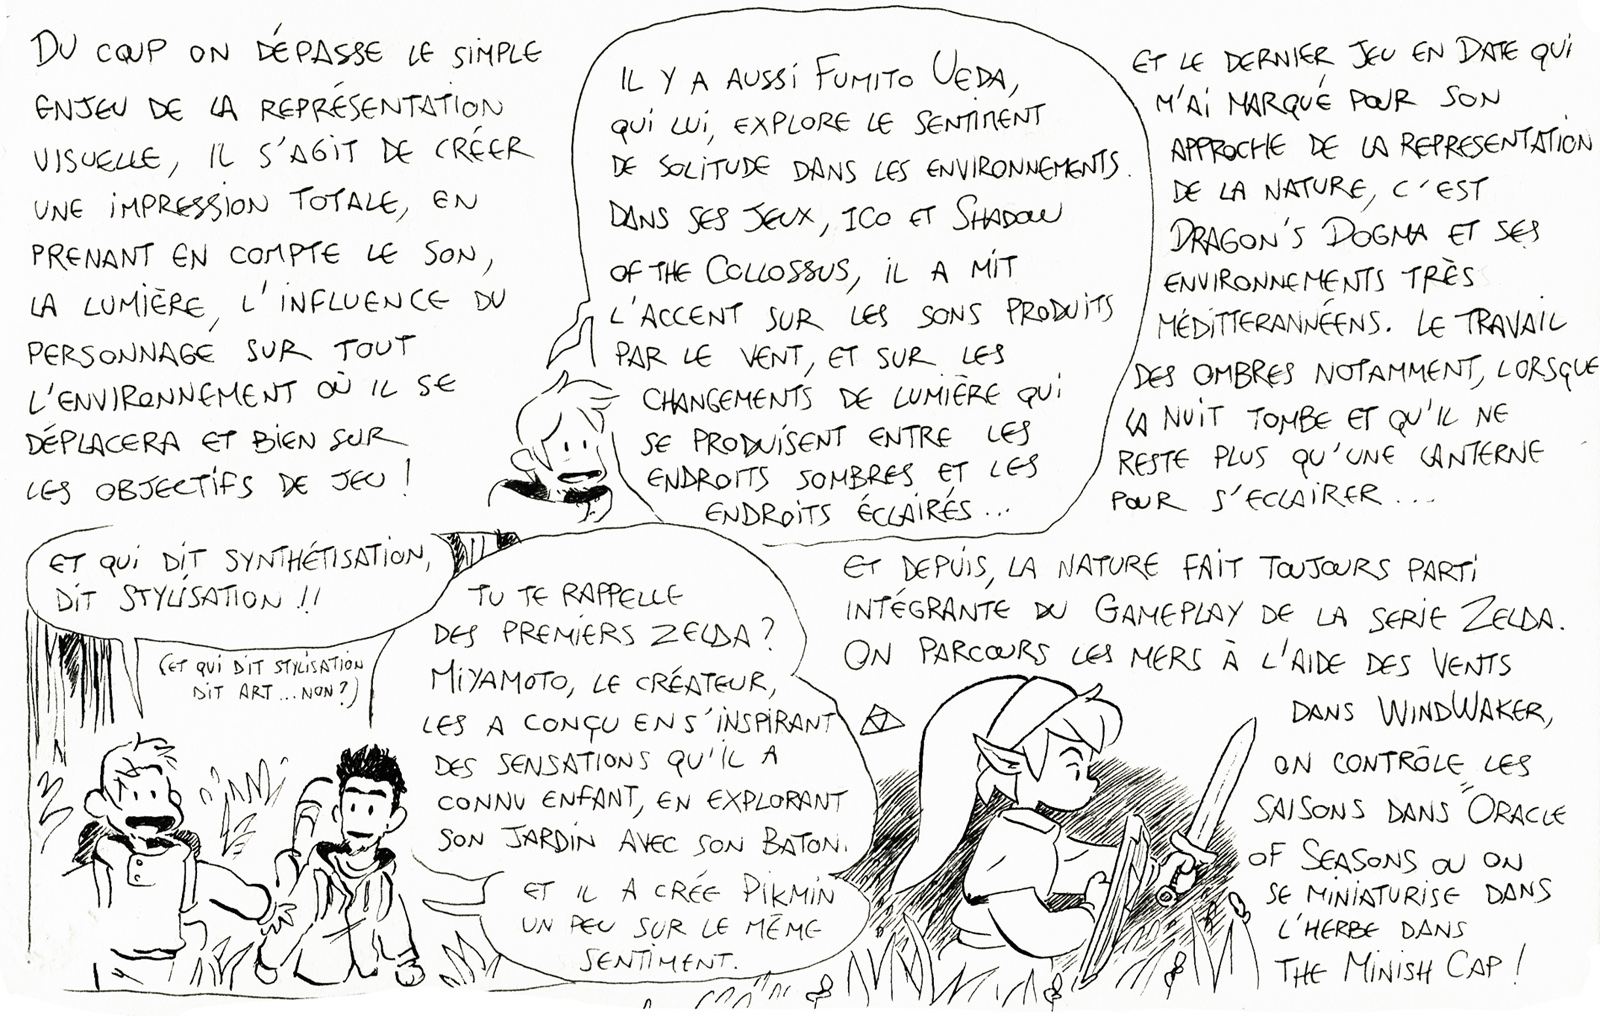 DU COUP ON DÉPASSE LE SIMPLE
ENJEU DE LA REPRÉSENTATION
VISUELLE, IL S'AGIT DE CRÉER
UNE IMPRESSION TOTALE, EN
PRENANT EN COMPTE LE SON,
LA LUMIÈRE, L'INFLUENCE DU
PERSONNAGE SUR TOUT
L'ENVIRONNEMENT OÙ IL SE
DÉPLACERA ET BIEN SUR
LES OBJECTIFS DE JEU !
IL Y A AUSSI FUMITO UEDA,
QUI LUI, EXPLORE LE SENTIMENT
DE SOLITUDE DANS LES ENVIRONNEMENTS.
DANS SES JEUX, ICO ET SHADOW
OF THE COLLOSSUS, IL A MIT
L'ACCENT SUR LES SONS PRODUITS
PAR LE VENT, ET SUR LES
CHANGEMENTS DE LUMIÈRE QUI
SE PRODUISENT ENTRE LES
ENDROITS SOMBRES ET LES
ENDROITS ÉCLAIRÉS...
ET LE DERNIER JEU EN DATE QUI
M'AI MARQUÉ POUR SON
APPROCHE DE LA REPRESENTATION
DE LA NATURE, C'EST
DRAGON'S DOGMA ET SES
ENVIRONNEMENTS TRÈS
MÉDITTERANNÉENS. LE TRAVAIL
DES OMBRES NOTAMMENT, LORSQUE
LA NUIT TOMBE ET QU'IL NE
RESTE PLUS QU'UNE LANTERNE
POUR S'ECLAIRER...
ET QUI DIT SYNTHÉTISATION,
DIT STYLISATION !!
(ET QUI DIT STYLISATION
DIT ART... NON ?)
TU TE RAPPELLE
DES PREMIERS ZELDA ?
MIYAMOTO, LE CRÉATEUR,
LES A CONÇU EN S'INSPIRANT
DES SENSATIONS QU'IL A
CONNU ENFANT, EN EXPLORANT
SON JARDIN AVEC SON BATON.
ET IL A CRÉE PIKMIN
UN PEU SUR LE MÊME
SENTIMENT.
ET DEPUIS, LA NATURE FAIT TOUJOURS PARTI
INTÉGRANTE DU GAMEPLAY DE LA SERIE ZELDA.
ON PARCOURS LES MERS À L'AIDE DES VENTS
DANS WINDWAKER,
ON CONTRÔLE LES
SAISONS DANS "ORACLE
OF SEASONS OU ON
SE MINIATURISE DANS
L'HERBE DANS
THE MINISH CAP !